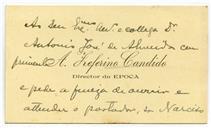 Ao seu Exmo Am.º e collega Dr.
Antonio José de Almeida cum
primenta A. Zeferino Candido
Director da EPOCA
e pede a fineza de ouvir e
attender o portador, sr. Narciso